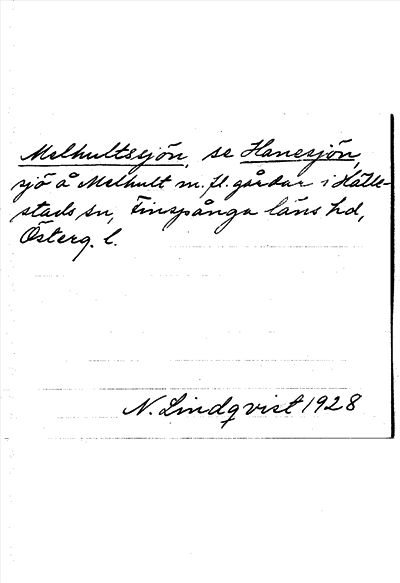 Melhultssjön, se Hanesjön,
sjö å Melhult m. fl. gårdar i Hälle-
stads sn, Finspånga läns hd,
Österg. l.
N. Lindqvist 1928